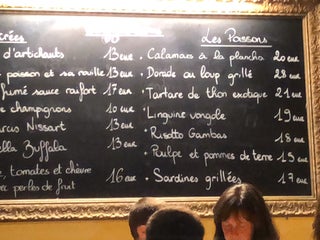 Les Poissons
d'artichauts 13 eur
poisson et sa rouille 13 eur
fumé sauce raifort 17 eur
champignons 10 eur
Nissart 13 eur
Buffala 13 eur
, tomates et chèvre
perles de fruit 16 eur
• Calamars à la plancha 20 eur
• Dorade ou loup grillé 28 eur
• Tartare de thon exotique 21 eur
• Linguine vongole 19 eur
• Risotto Gambas 18 eur
• Poulpe et pommes de terre 19 eur
• Sardines grillées 17 eur